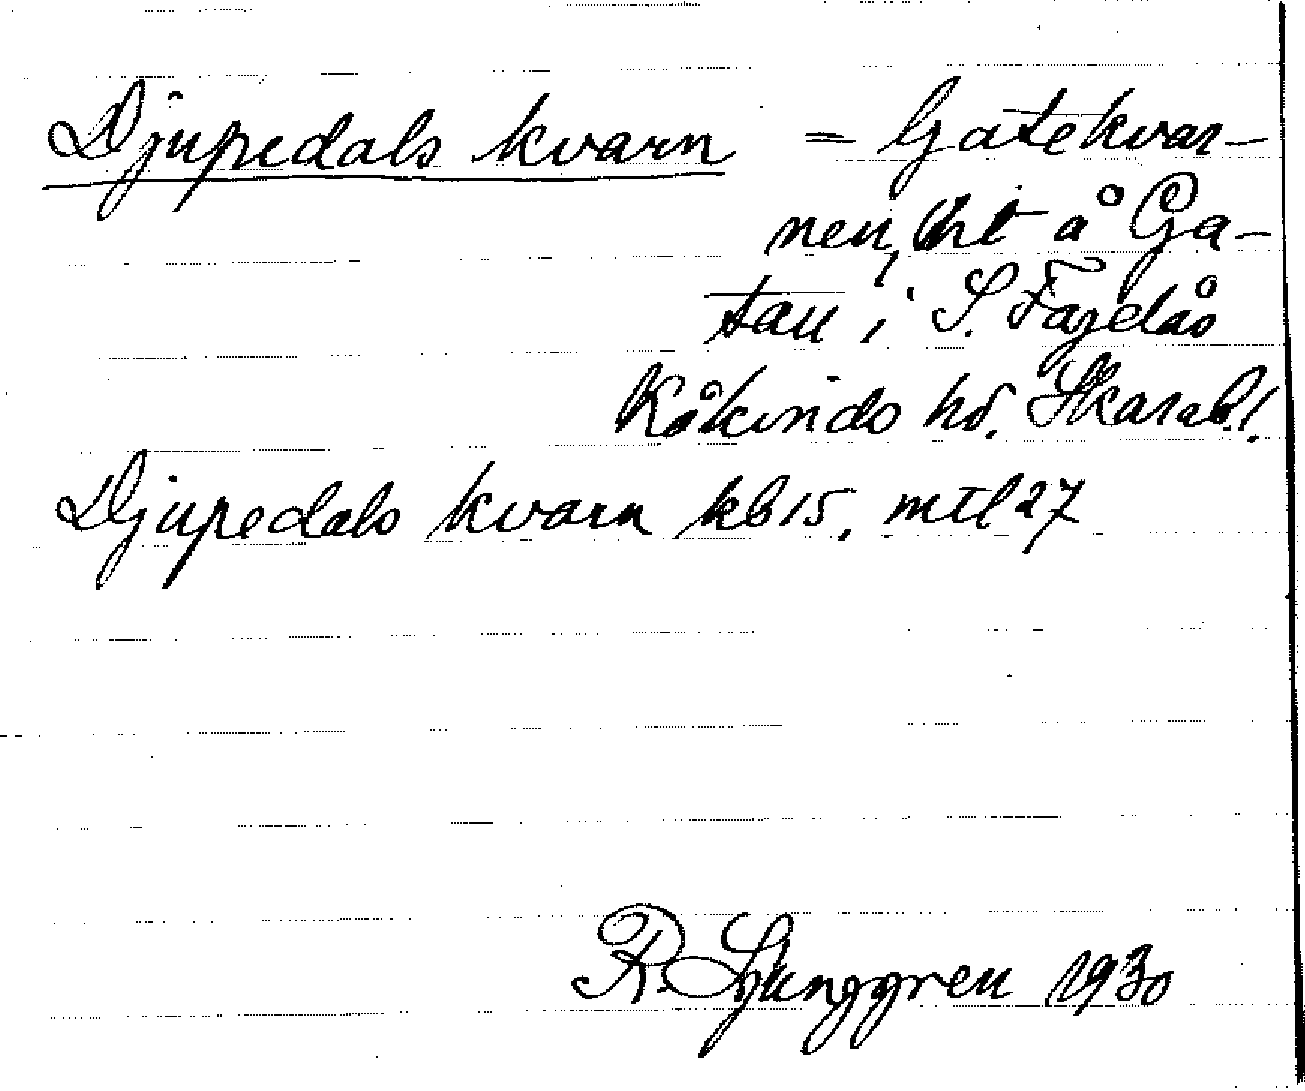 Djupedals kvarn = Gatekvar-
nen, lht å Ga-
tan i S. Fågelås
Kåkinds hd. Skarab.l.
Djupedals kvarn kb 15, mtl 27
R. Ljunggren 1930